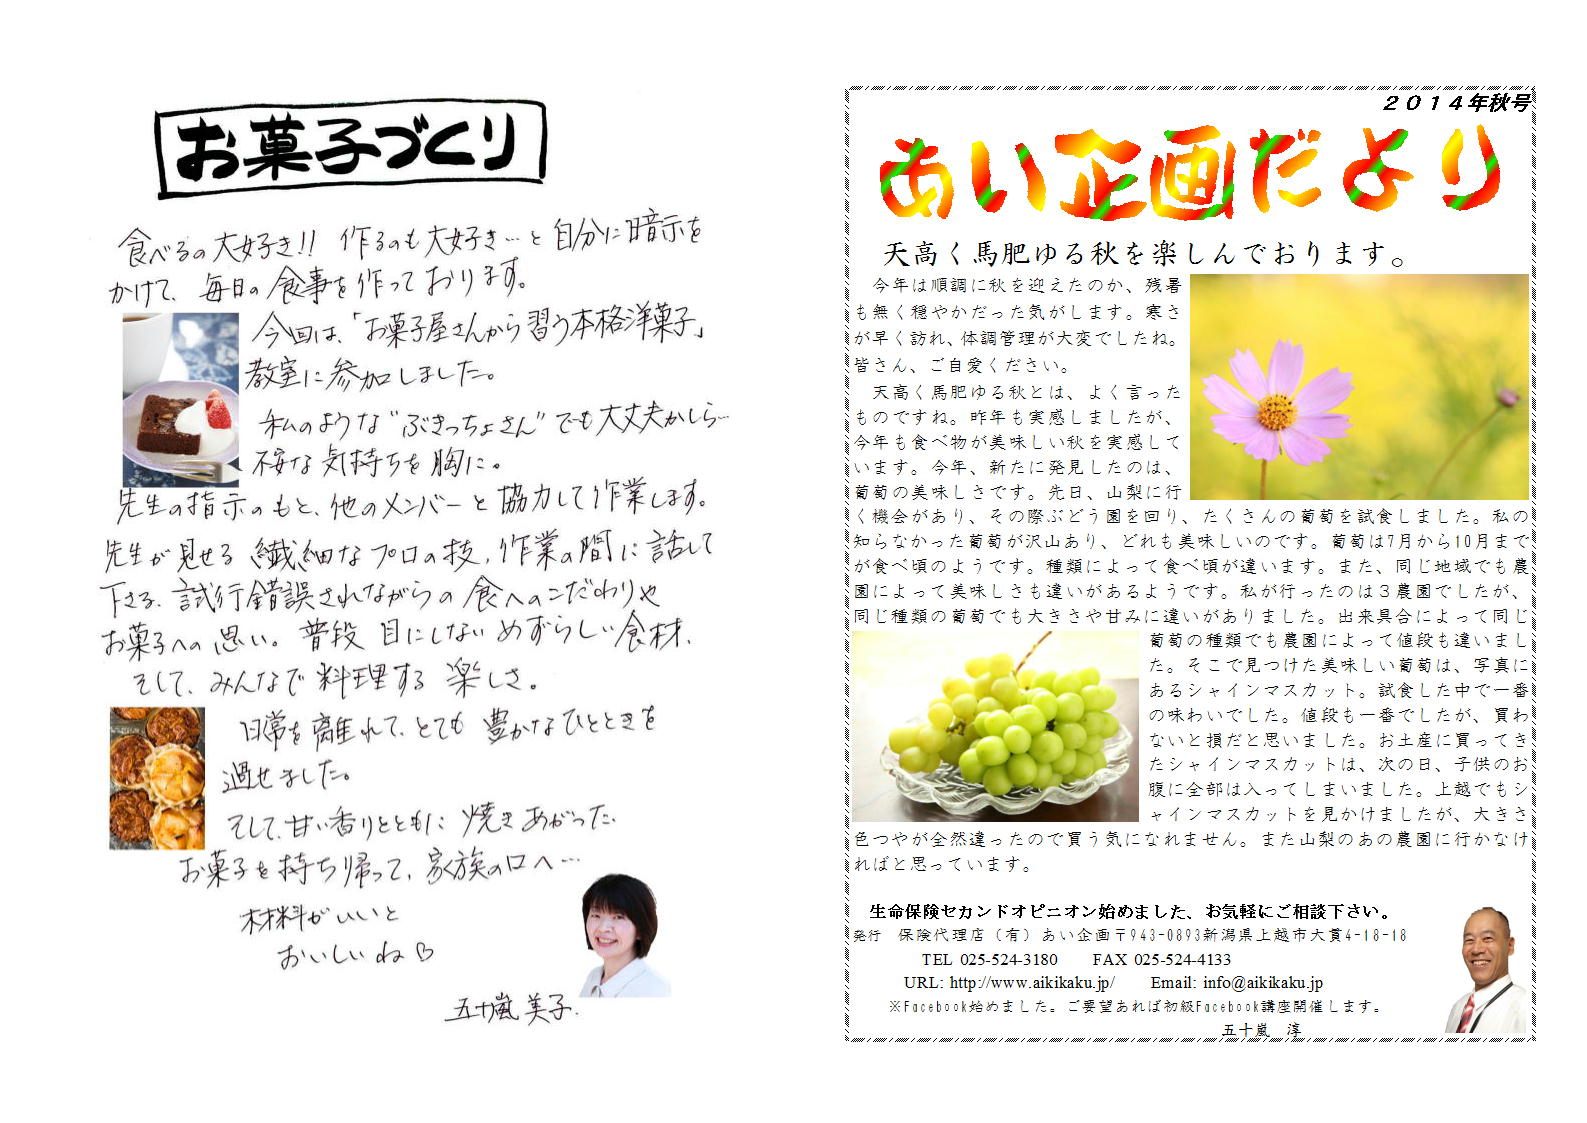 お菓子づくり
食べるの大好き!! 作るのも大好き…と自分に暗示を
かけて、毎日の食事を作っております。
今回は、「お菓子屋さんから習う本格洋菓子」
教室に参加しました。
私のような“ぶきっちょさん”でも大丈夫かしら…
不安な気持ちを胸に。
先生の指示のもと、他のメンバーと協力して作業します。
先生が見せる繊細なプロの技、作業の間に話して
下さる、試行錯誤されながらの食へのこだわりや
お菓子への思い。普段目にしないめずらしい食材、
そして、みんなで料理する楽しさ。
日常を離れて、とても豊かなひとときを
過せました。
そして、甘い香りとともに焼きあがった、
お菓子を持ち帰って、家族の口へ…
材料がいいと
おいしいね♡
五十嵐美子.
２０１４年秋号
あい企画だより
天高く馬肥ゆる秋を楽しんでおります。
今年は順調に秋を迎えたのか、残暑
も無く穏やかだった気がします。寒さ
が早く訪れ、体調管理が大変でしたね。
皆さん、ご自愛ください。
天高く馬肥ゆる秋とは、よく言った
ものですね。昨年も実感しましたが、
今年も食べ物が美味しい秋を実感して
います。今年、新たに発見したのは、
葡萄の美味しさです。先日、山梨に行
く機会があり、その際ぶどう園を回り、たくさんの葡萄を試食しました。私の
知らなかった葡萄が沢山あり、どれも美味しいのです。葡萄は7月から10月まで
が食べ頃のようです。種類によって食べ頃が違います。また、同じ地域でも農
園によって美味しさも違いがあるようです。私が行ったのは３農園でしたが、
同じ種類の葡萄でも大きさや甘みに違いがありました。出来具合によって同じ
葡萄の種類でも農園によって値段も違いまし
た。そこで見つけた美味しい葡萄は、写真に
あるシャインマスカット。試食した中で一番
の味わいでした。値段も一番でしたが、買わ
ないと損だと思いました。お土産に買ってき
たシャインマスカットは、次の日、子供のお
腹に全部は入ってしまいました。上越でもシ
ャインマスカットを見かけましたが、大きさ
色つやが全然違ったので買う気になれません。また山梨のあの農園に行かなけ
ればと思っています。
生命保険セカンドオピニオン始めました、お気軽にご相談下さい。
発行　保険代理店（有）あい企画〒943-0893新潟県上越市大貫4-18-18
TEL 025-524-3180　FAX 025-524-4133
URL: http://www.aikikaku.jp/　Email: info@aikikaku.jp
※Facebook始めました。ご要望あれば初級Facebook講座開催します。
五十嵐　淳